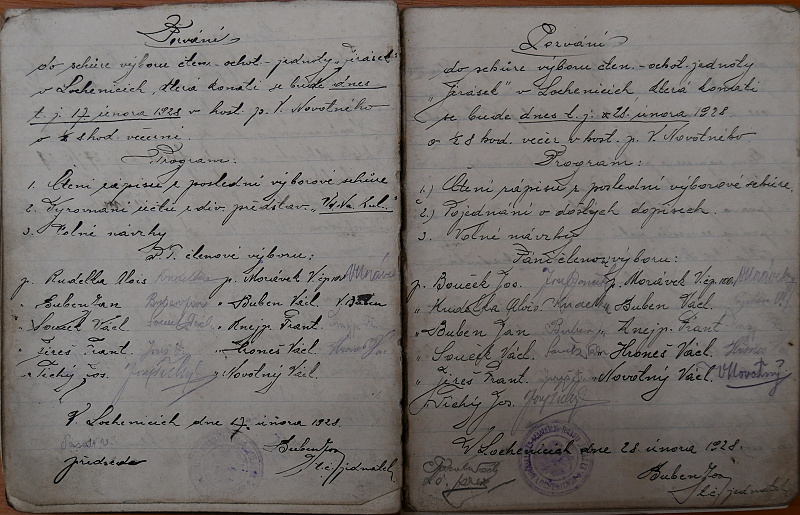 Pozvání
do schůze výboru čten.-ochot. jednoty "Jirásek"
v Lochenicích, která konati se bude dnes
t. j. 17 února 1928 v host. p. V. Novotného
o ½ 8 hod. večerní
Program:
1. Čtení zápisu z poslední výborové schůze
2. Vyrovnání účtu z div. představ.
3. Volné návrhy
P. T. členové výboru:
p. Kudelka Alois p. Morávek Vác. Morávek
" Buben Jan " Buben Václ. V Buben
" Souček Václ " Knejp. Frant.
" Jireš Frant. " Hroneš Václ.
" Tichý Jos. " Novotný Václ.
V Lochenicích dne 17. února 1928.
Buben Jos
předseda t. č. jednatel
Pozvání
do schůze výboru čten.-ochot. jednoty
"Jirásek" v Lochenicích která konati
se bude dnes t. j. 28. února 1928
o ½ 8 hod. večer v host. p. V. Novotného.
Program:
1.) Čtení zápisu z poslední výborové schůze.
2.) Pojednání o došlých dopisech.
3. Volné návrhy
Páni členové výboru:
p. Bouček Jos. p. Morávek Vác.
" Kudelka Alois " Buben Václ.
" Buben Jan " Knejp. Frant
" Souček Václ. " Hroneš Václ.
" Jireš Frant. " Novotný Václ. V Novotný
Tichý Jos.
V Lochenicích dne 28. února 1928.
Buben Jos
t. č. jednatel